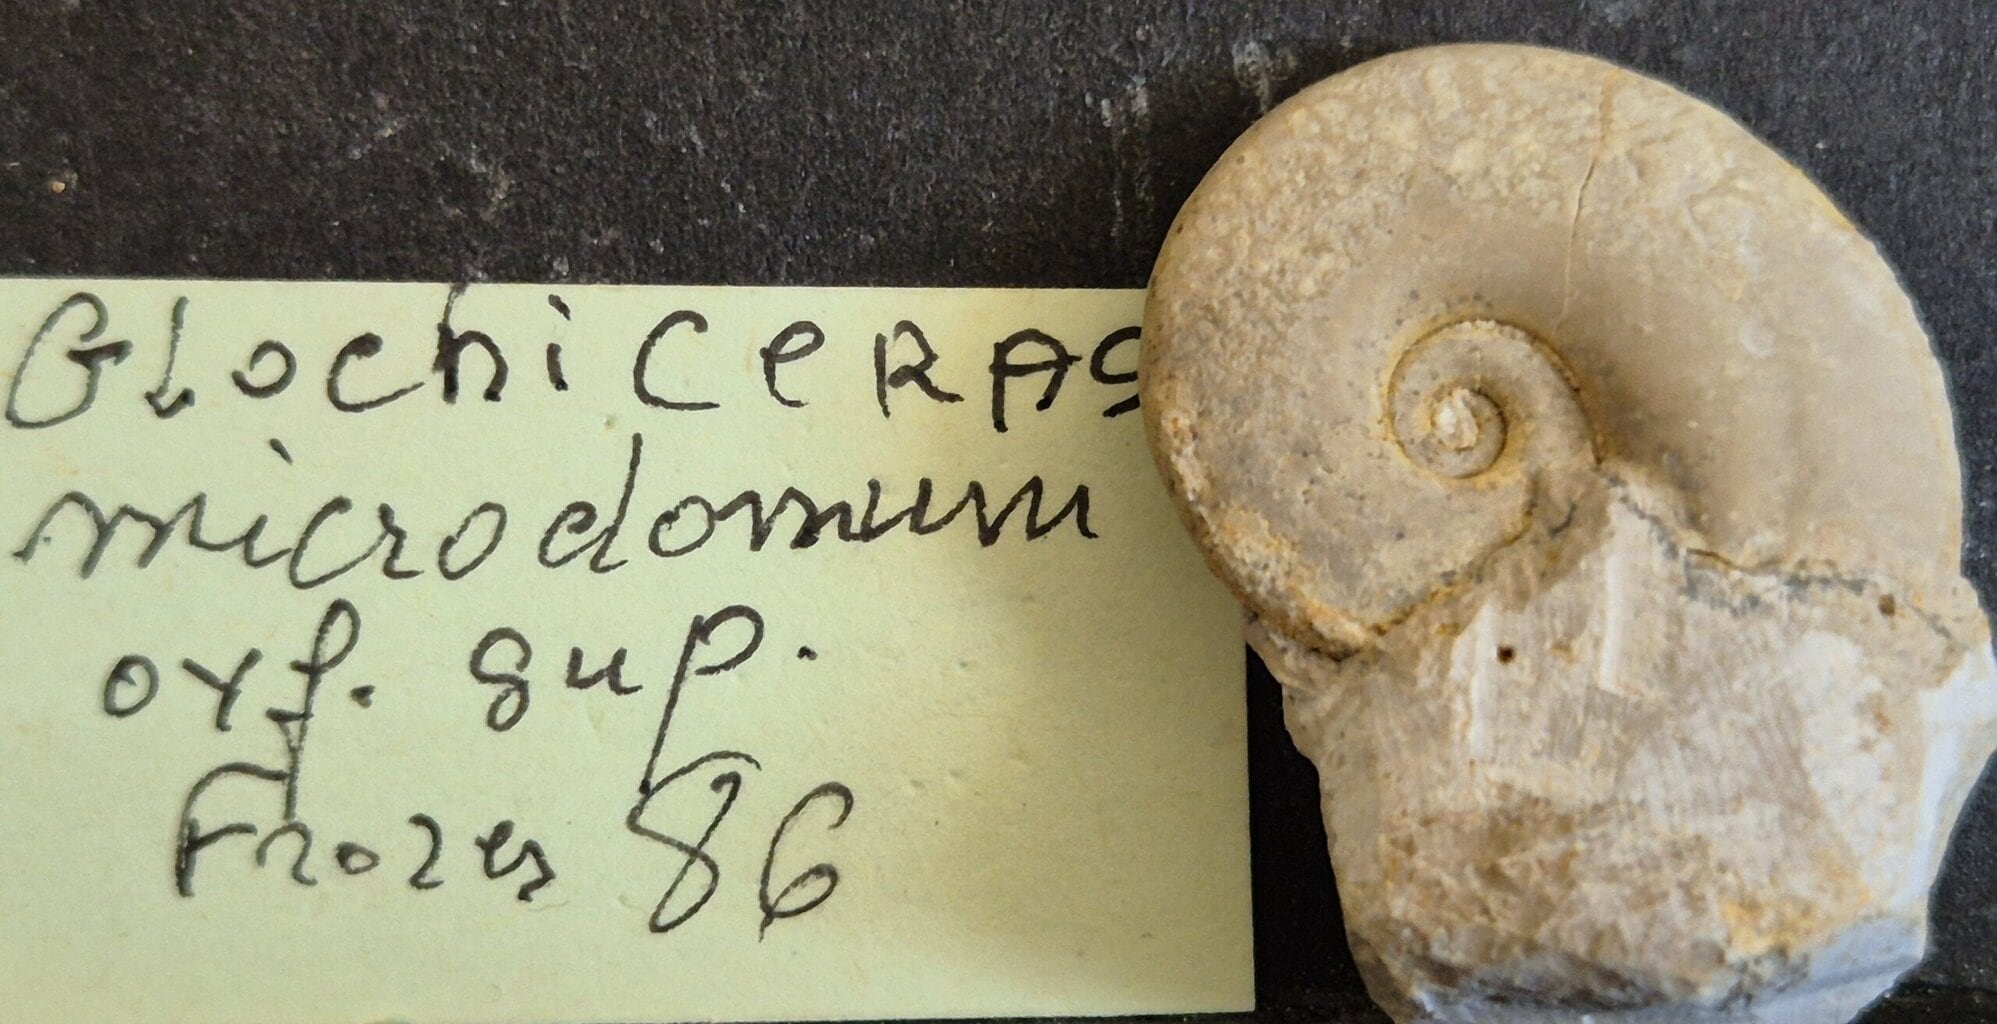 GlochiCeRAS
microdomum
oxf. sup.
Frozes 86